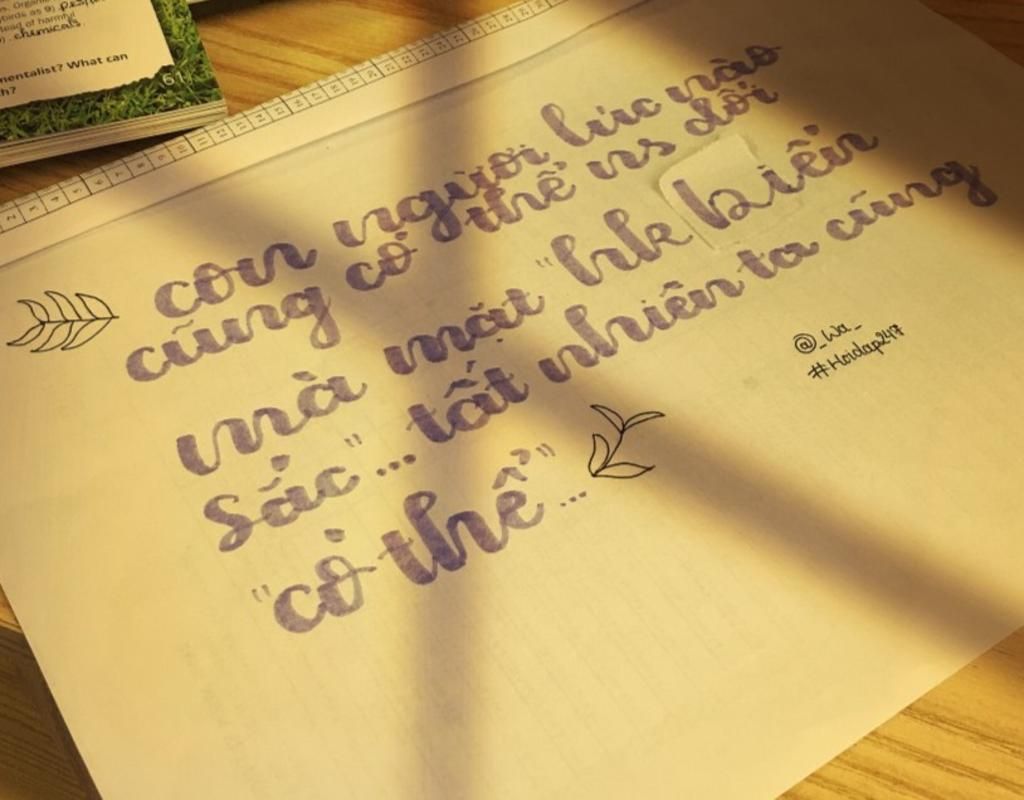 birds as 9)
tead of harmful
chemicals
mentalist? What can
h?
61
con người lúc nào
cũng có thể ns dối
mà mặt "hk biến
sắc"... tất nhiên ta cũng
"có thể"...
@_Wa_
#Hoidap247